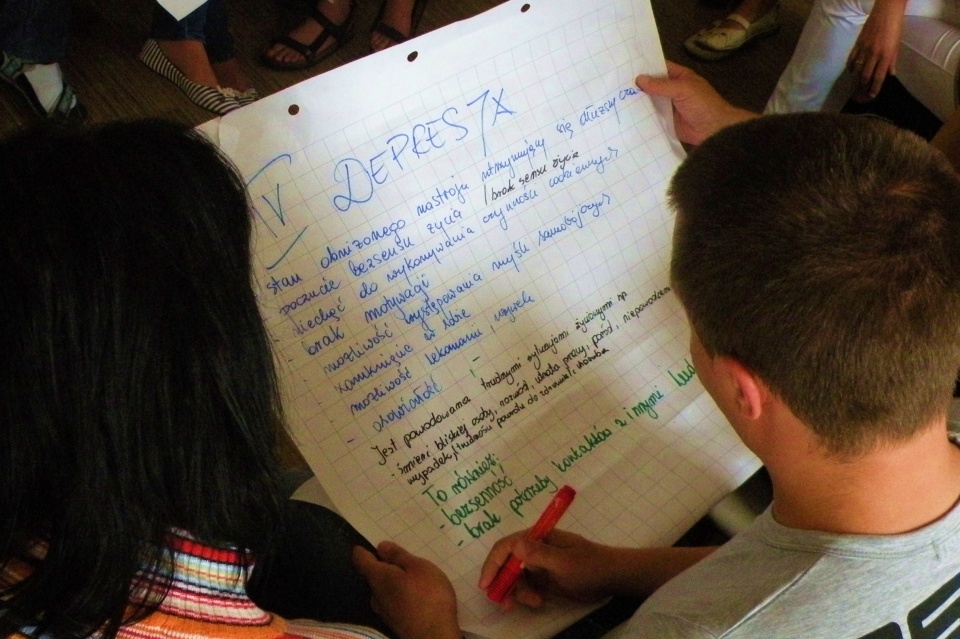 IV DEPRESJA
stan obniżonego nastroju utrzymujący się dłuższy czas
- poczucie bezsensu życia / brak sensu życia
- niechęć do wykonywania czynności codziennych
- brak motywacji
- możliwość występowania myśli samobójczych
- zamknięcie w sobie
- możliwość lekomanii,
-
Jest powodowana trudnymi sytuacjami życiowymi np.
- śmierć bliskiej osoby, rozwód, utrata pracy, poród, niepowodzenia
wypadek, trudności powrotu do zdrowia, choroba
To również:
- bezsenność
- brak potrzeby kontaktów z innymi